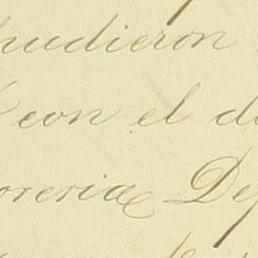 pudieron
con el d
oreria De